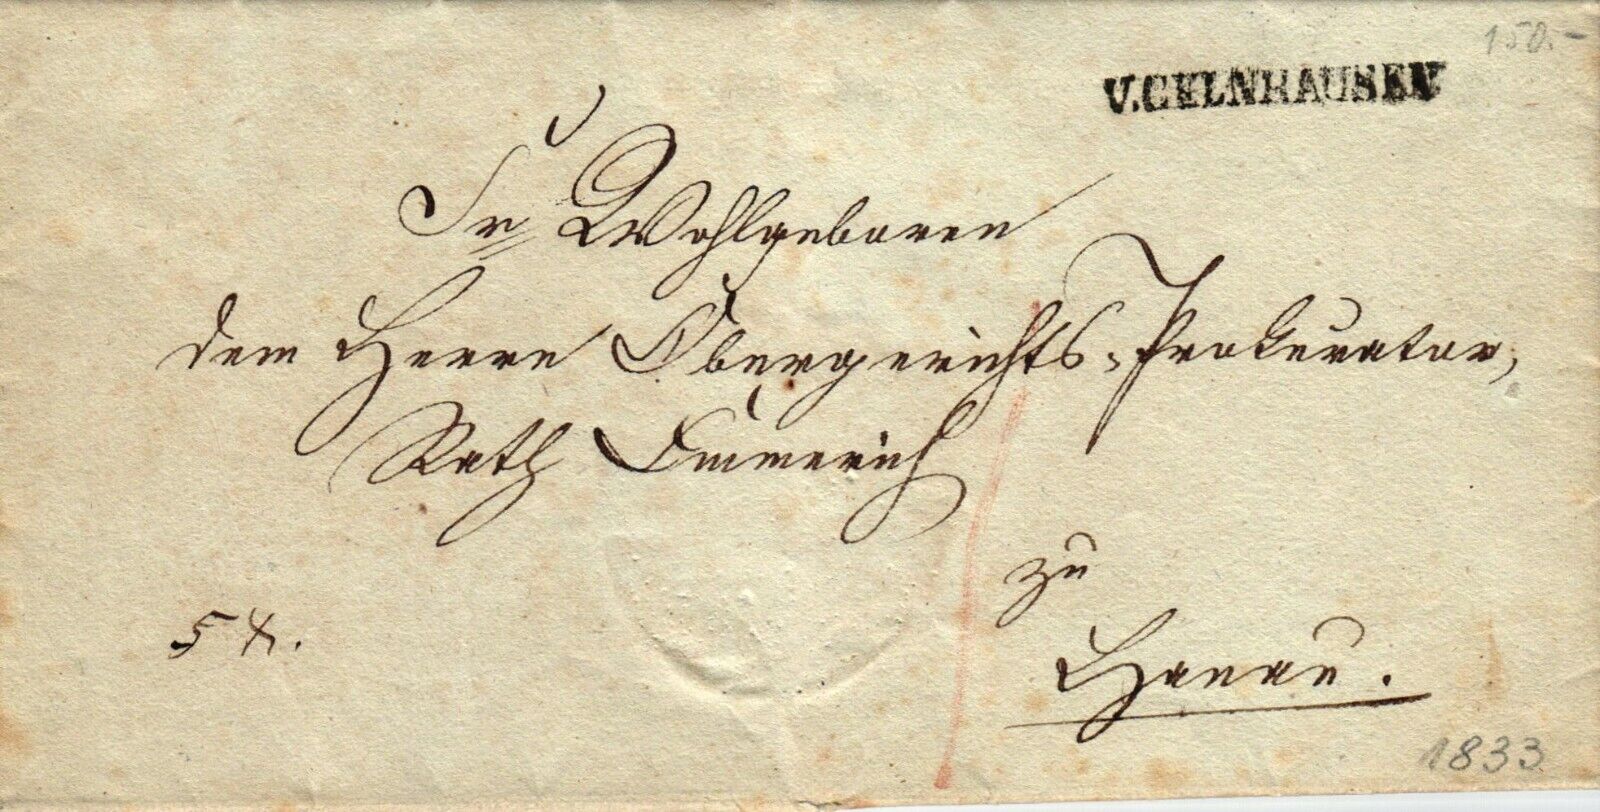 150.-
V.GELNHAUSEN
Sr Wohlgeboren
dem Herrn Obergerichts-Prokurator,
Rath Emmerich
zu
Hanau.
5 x.
1833